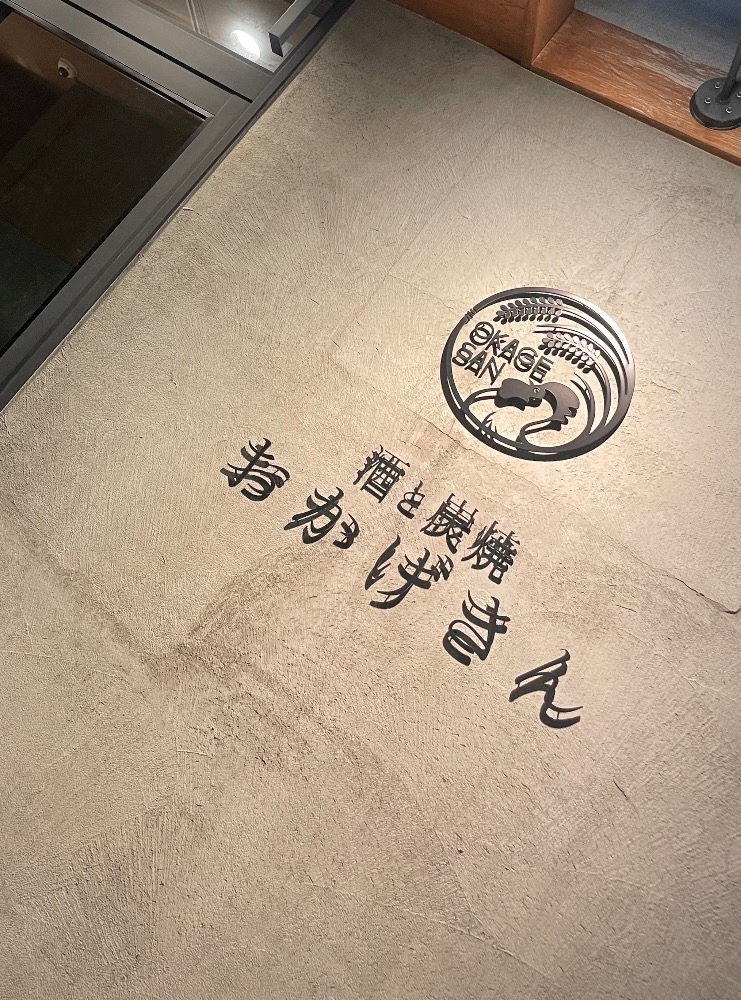 OKAGE
SAN
酒と炭焼
おかげさん